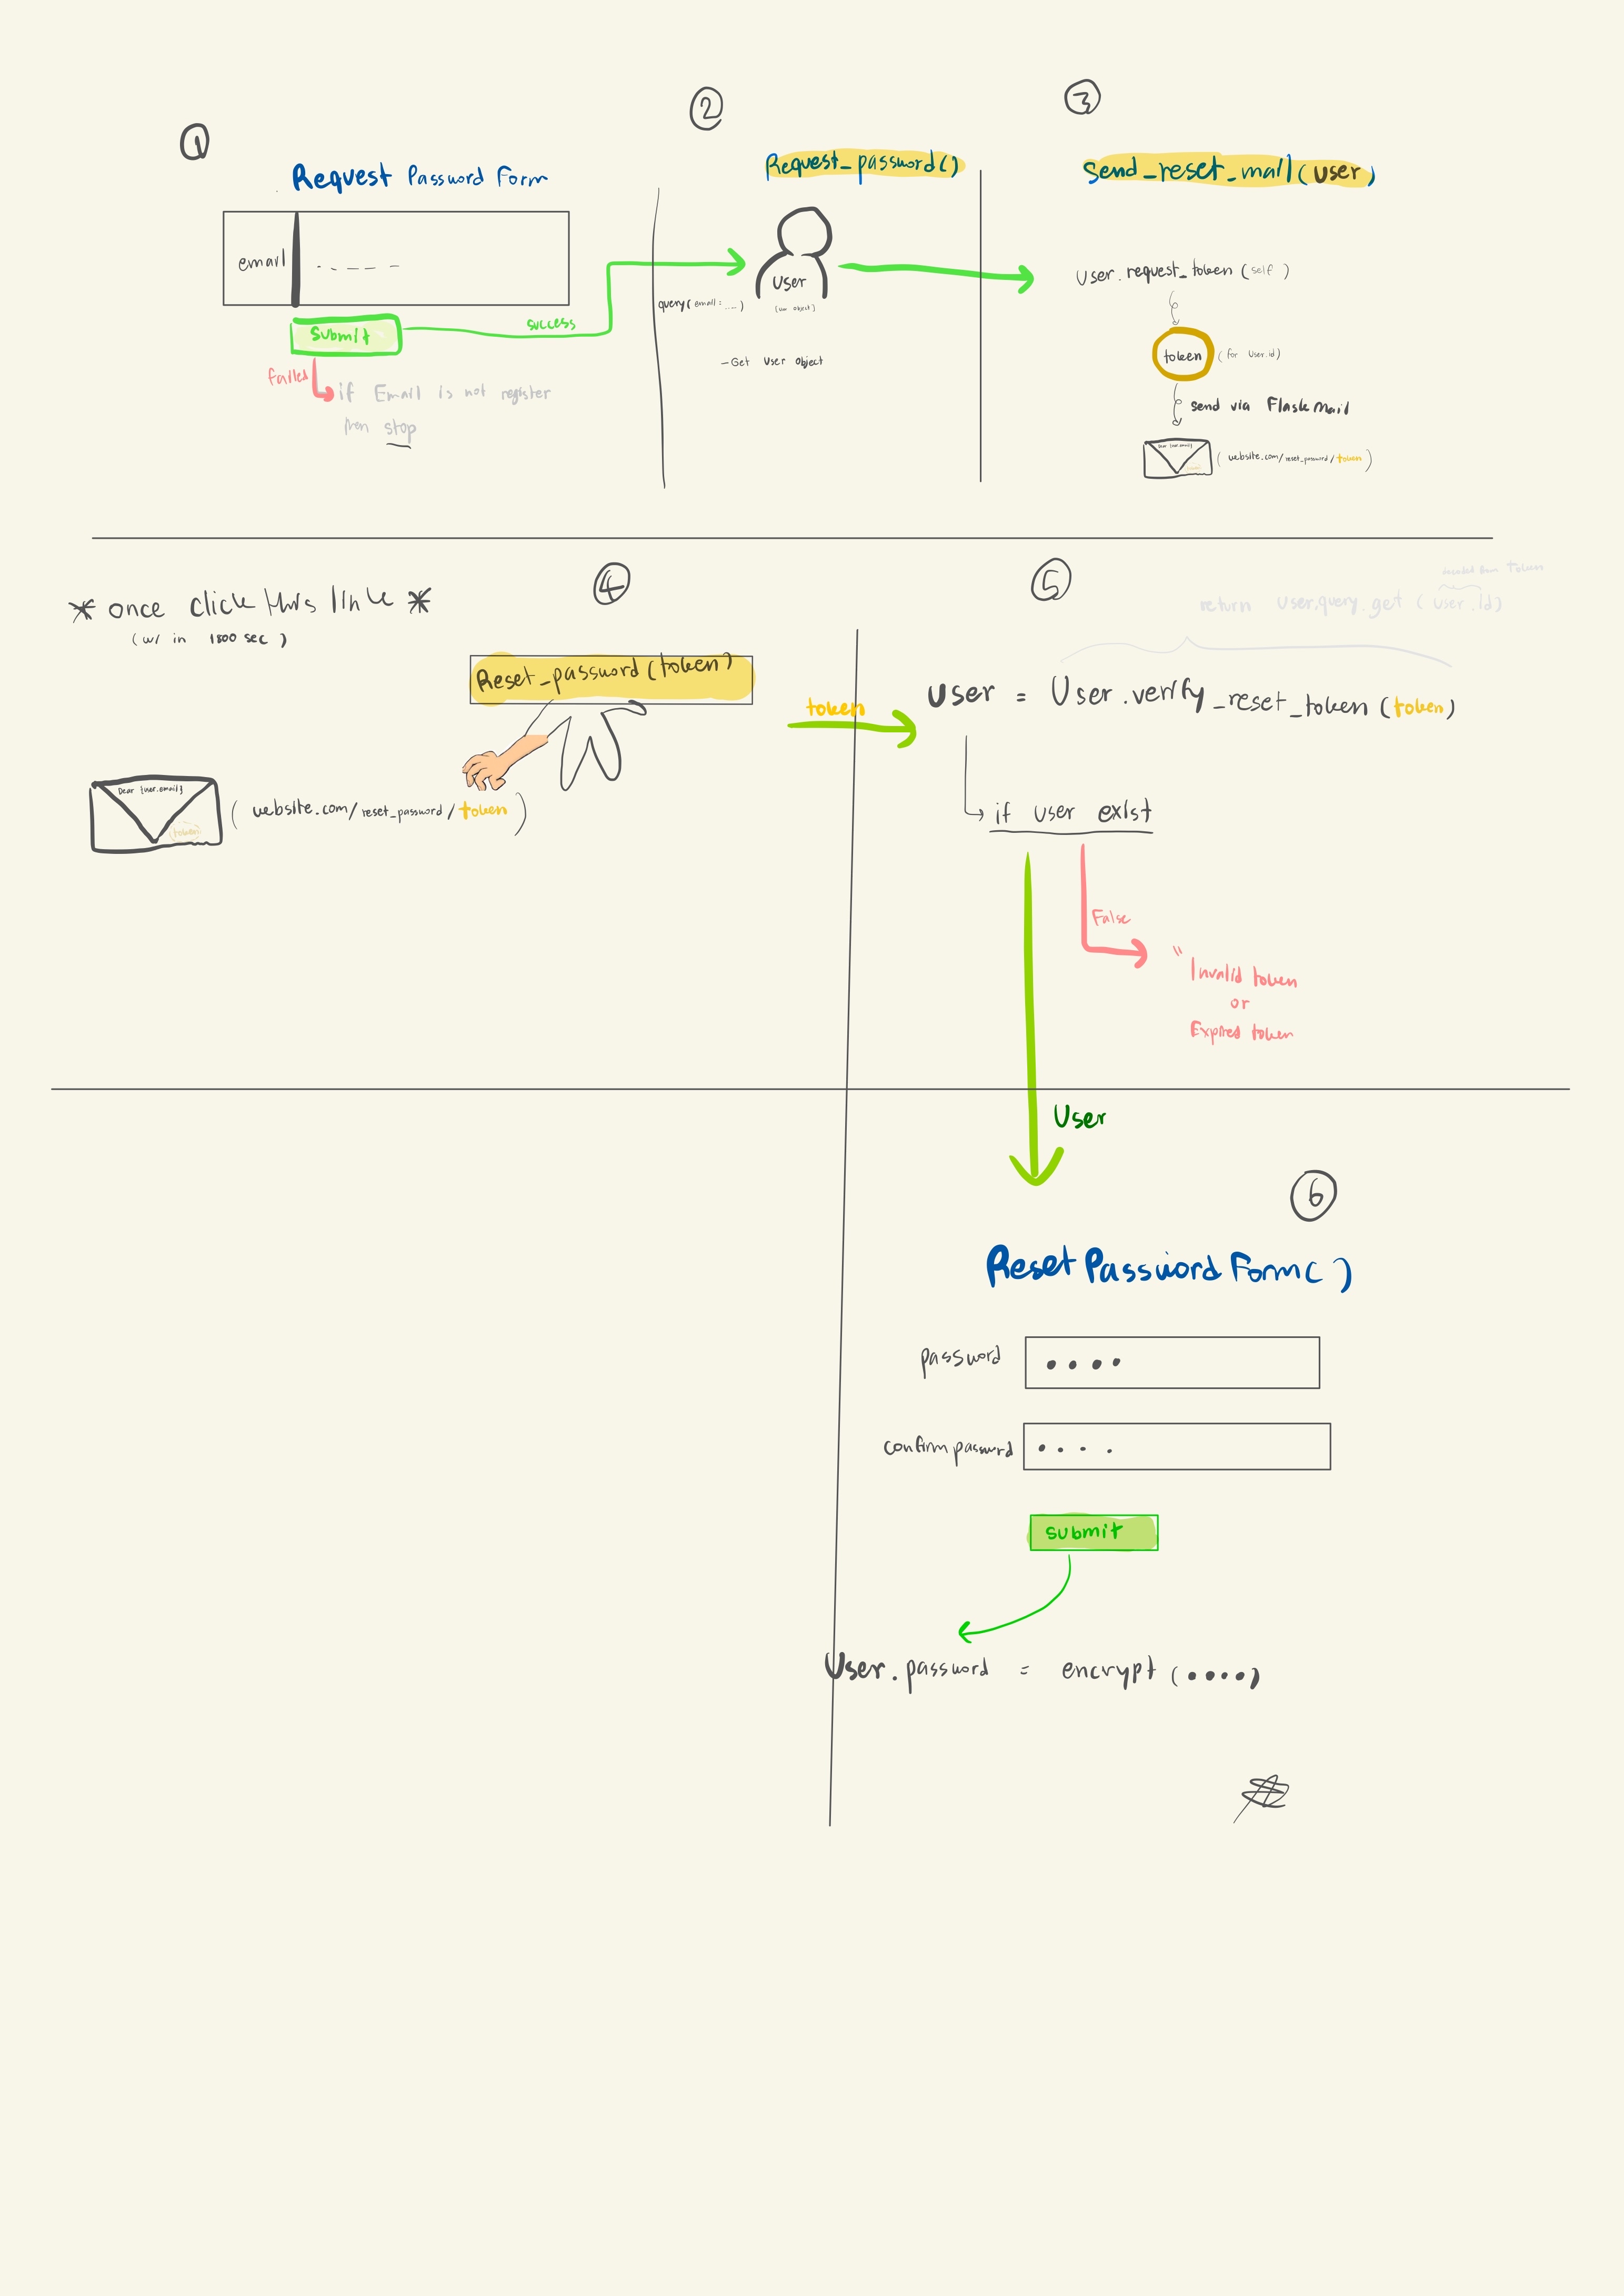 1
Request Password Form
email
submit
success
failed
if Email is not register
then stop
2
Request_password()
User
(user object)
query(email:.....)
-Get User Object
3
Send_reset_mail(user)
User.request_token (self)
token (for User.id)
send via Flask Mail
Dear {user.email}
(website.com/reset_password/token)
* once click this link *
(w/ in 1800 sec)
4
Reset_password(token)
Dear {user.email}
(token)
(website.com/reset_password/token)
token
5
token
return User.query.get (user.id)
user = User.verify_reset_token (token)
if user exist
False
" Invalid token
or
Expired token
User
6
Reset Password Form()
password ....
confirm password ....
submit
User.password = encrypt (....)